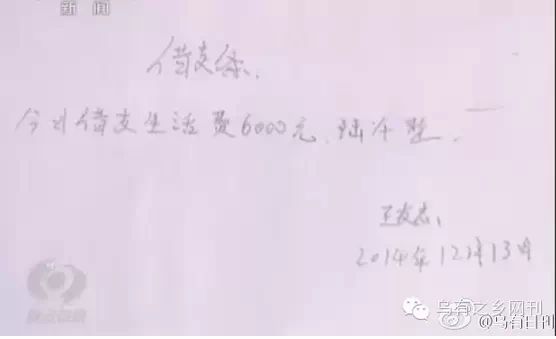 新闻
借支条、
今 借支生活费6000元、陆仟整.
2014年12月13日
焦点访谈
乌有之乡网刊
@乌有日刊